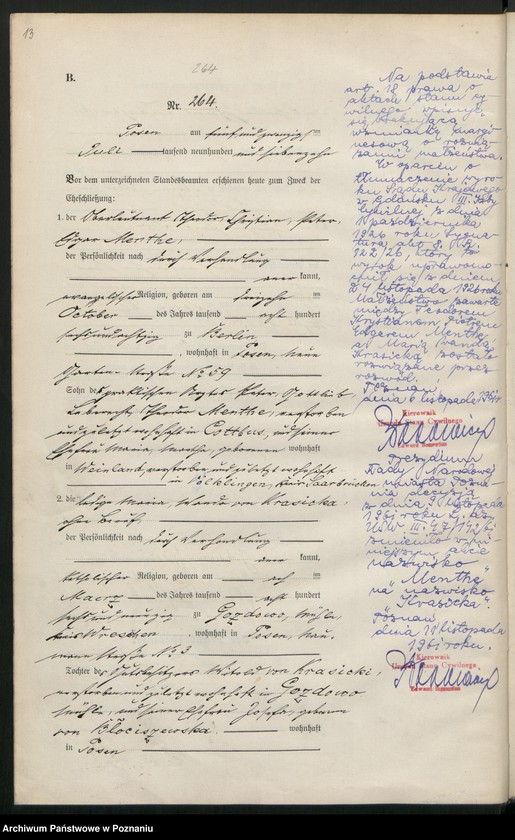 13
264
B.
Nr. 264.
Posen am fünf und zwanzigsten
Juli tausend neunhundert und siebenzehn
Vor dem unterzeichneten Standesbeamten erschienen heute zum Zweck der
Eheschließung:
1. der Oberleutnant Theodor, Christian, Peter,
Menthe,
der Persönlichkeit nach durch Verhandlung
kannt,
evangelischer Religion, geboren am
October des Jahres tausend acht hundert
sechsundachtzig zu Berlin
, wohnhaft in Posen, neue
Garten Straße No 59
Sohn des praktischen Arztes Peter, Gottlieb,
Leberecht, Theodor Menthe, verstorben
und zuletzt wohnhaft in Cottbus, und seiner
Ehefrau Maria, Martha, geborenen wohnhaft
in Weinland, verstorben und zuletzt wohnhaft
in Völklingen, Kreis Saarbrücken
2. die ledige Maria, Wanda von Krasicka,
ohne Beruf,
der Persönlichkeit nach durch Verhandlung
kannt,
katholischer Religion, geboren am acht
Maerz des Jahres tausend acht hundert
sechs und neunzig zu Gozdowo, Mühle,
Kreis Wreschen, wohnhaft in Posen, Nau-
mann Straße No 3
Tochter des Gutsbesitzers Witold von Krasicki,
verstorben und zuletzt wohnhaft in Gozdowo
Mühle, und seiner Ehefrau Josefa, geborenen
von Błociszewska. wohnhaft
in Posen
Na podstawie
art. 18 prawa o
aktach stanu cy-
wilnego wpisuje
się brakującą
wzmiankę margi-
nesową o rozwią-
zaniu małżeństwa.
W oparciu o
tłumaczenie wyro-
ku Sądu Krajowego
w Gdańsku III. Izby
Cywilnej z dnia
października
1926 roku sygna-
tura akt 3. R.
122/26, który to
wyrok uprawomo-
cnił się z dniem
4 listopada 1926 roku
Małżeństwo zawarte
między Teodorem
Krystianem Piotrem
Menthe
a Marią Wandą
Krasicką zostało
rozwiązane przez
rozwód.
Poznań,
dnia 6 listopada 1961r
Kierownik
Urzędu Stanu Cywilnego
Prezydium
Rady Narodowej
miasta Pozna-
nia decyzją
z dnia listopada
1961 roku L. dz.
USW III-4
zmieniło w ni-
niejszym akcie
nazwisko
"Menthe"
na nazwisko
"Krasicka".
Poznań
dnia listopada
1961 roku.
Kierownik
Urzędu Stanu Cywilnego
Archiwum Państwowe w Poznaniu